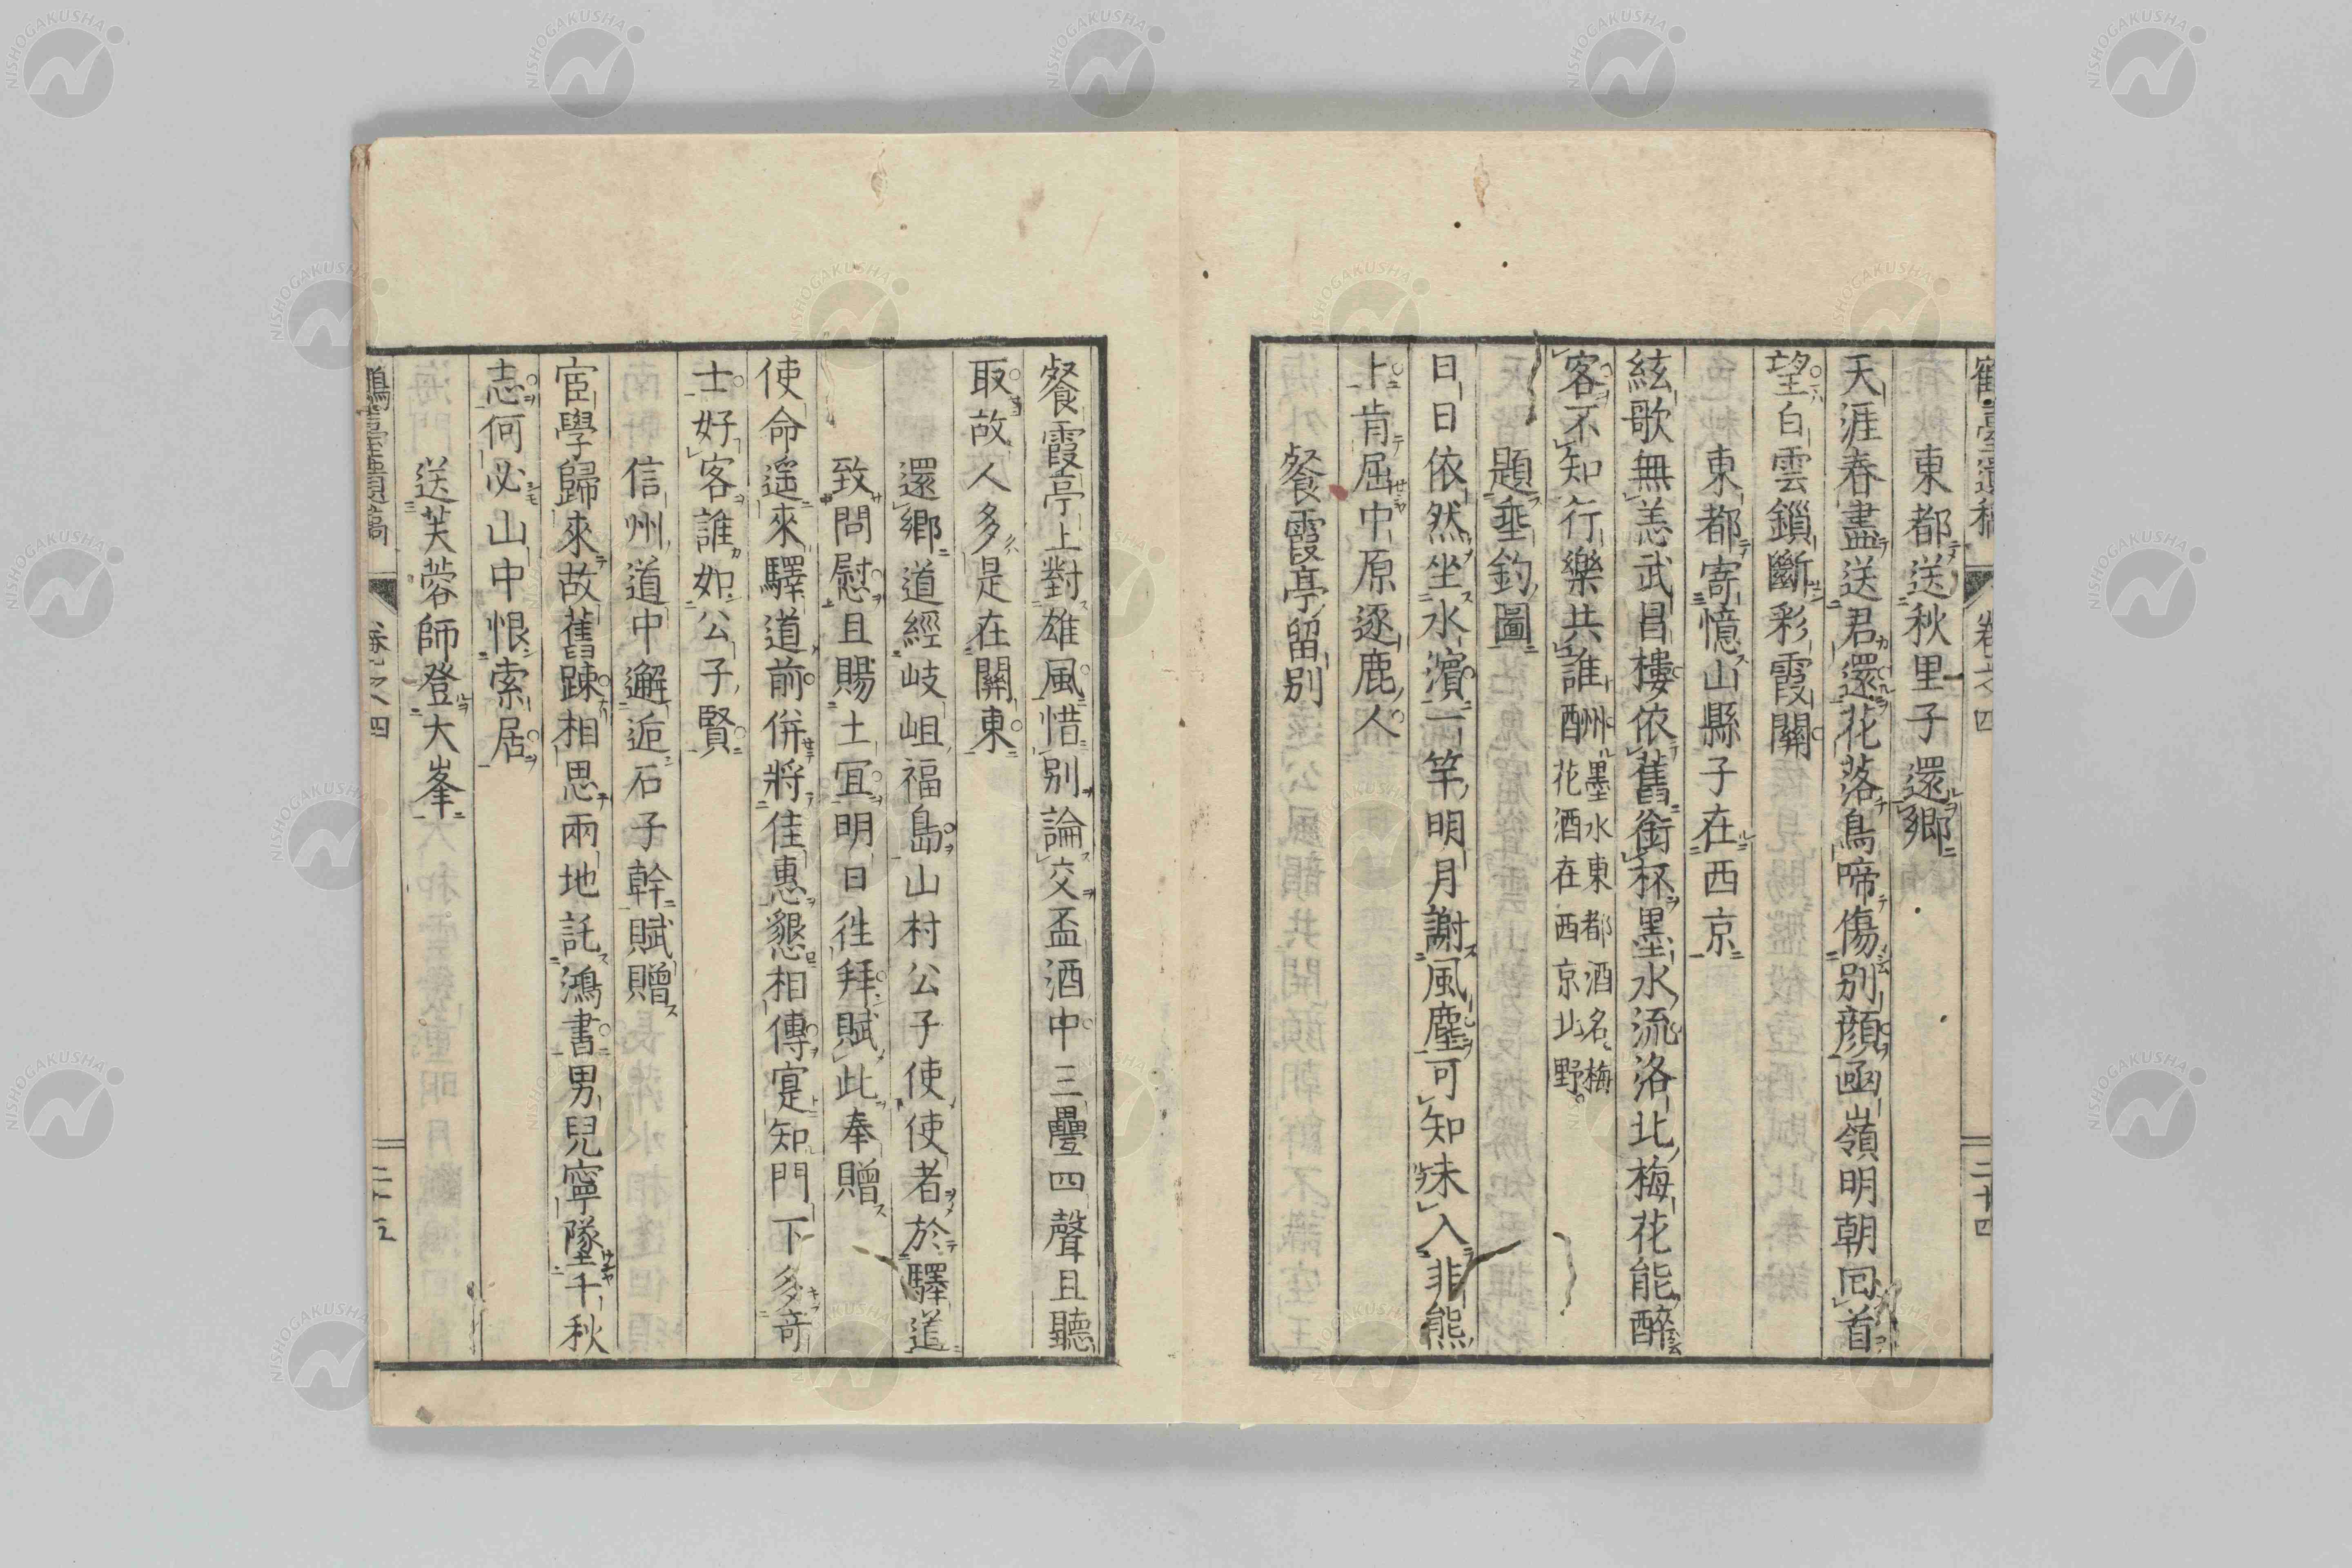 鶴臺遺稿 卷之四 二十四
東都送秋里子還鄉
天涯春盡送君還花落鳥啼傷別顏凾嶺明朝囘首
望白雲鎖斷彩霞關
東都寄憶山縣子在西京
絃歌無恙武昌樓依舊銜杯墨水流洛北梅花能醉
客不知行樂共誰酬
洲墨水東都酒名梅
花酒在西京北野
題垂釣圖
日日依然坐水濱一竿明月謝風塵可知未入非熊
卜肯屈中原逐鹿人
餐霞亭留別
餐霞亭上對雄風惜別論交盃酒中三疊四聲且聽
取故人多是在關東
還鄉道經岐岨福島山村公子使使者於驛道
致問慰且賜土宜明日徃拜賦此奉贈
使命遥來驛道前併將佳惠懇相傳寔知門下多奇
士好客誰如公子賢
信州道中邂逅石子幹賦贈
宦學歸來故舊踈相思兩地託鴻書男兒寧墜千秋
志何必山中恨索居
送芙蓉師登大峯
鶴臺遺稿 卷之四 二十五
NISHOGAKUSHA